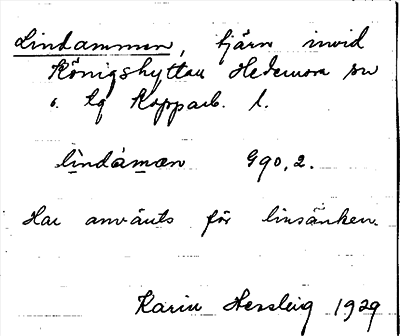 Lindammen, tjärn invid
Königshyttan Hedemora sn
o. tg Kopparb. l.
lìndámæn G90,2.
Har använts för linsänken.
Karin Hessleig 1929